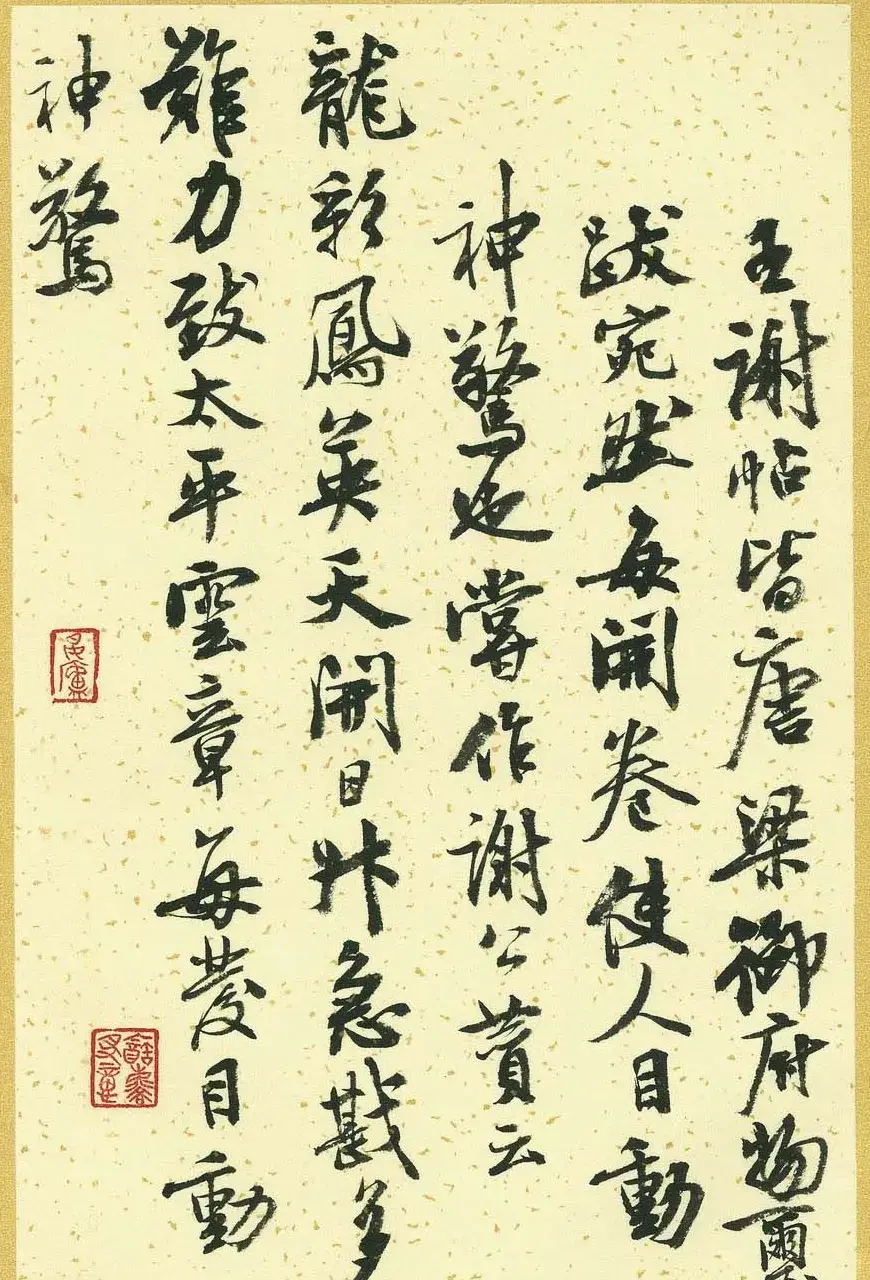 王謝帖皆唐梁御府物璽
跋宛然每開卷使人目動
神驚也嘗作謝公贊云
龍彩鳳英天開日升急戡多
難力致太平雲章每發目動
神驚